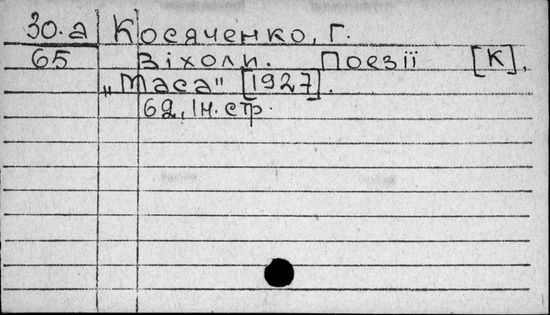 30.а Косяченко, Г.
65 Віхоли. Поезії [К].
„Маса" [1927].
62, Iн. стр.